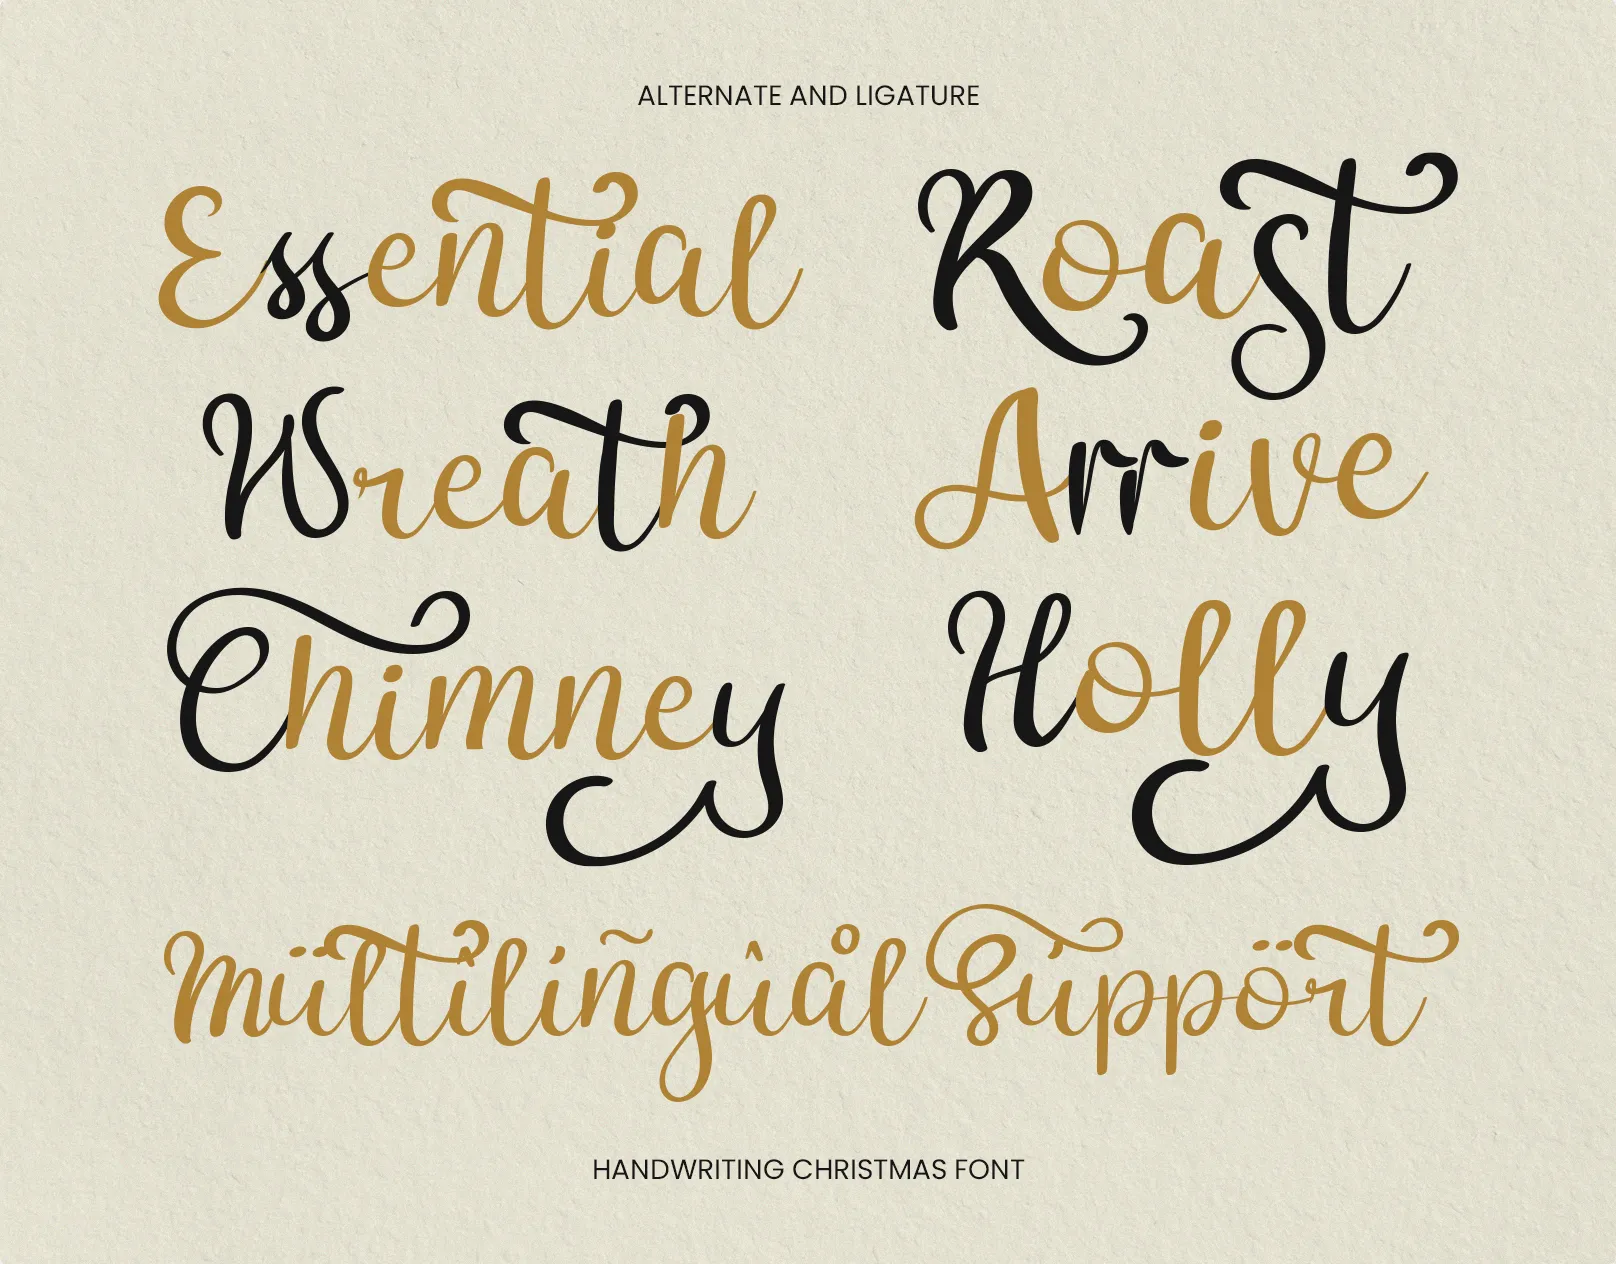 ALTERNATE AND LIGATURE
Essential Roast
Wreath Arrive
Chimney Holly
Mültilíñgûål Śuppört
HANDWRITING CHRISTMAS FONT